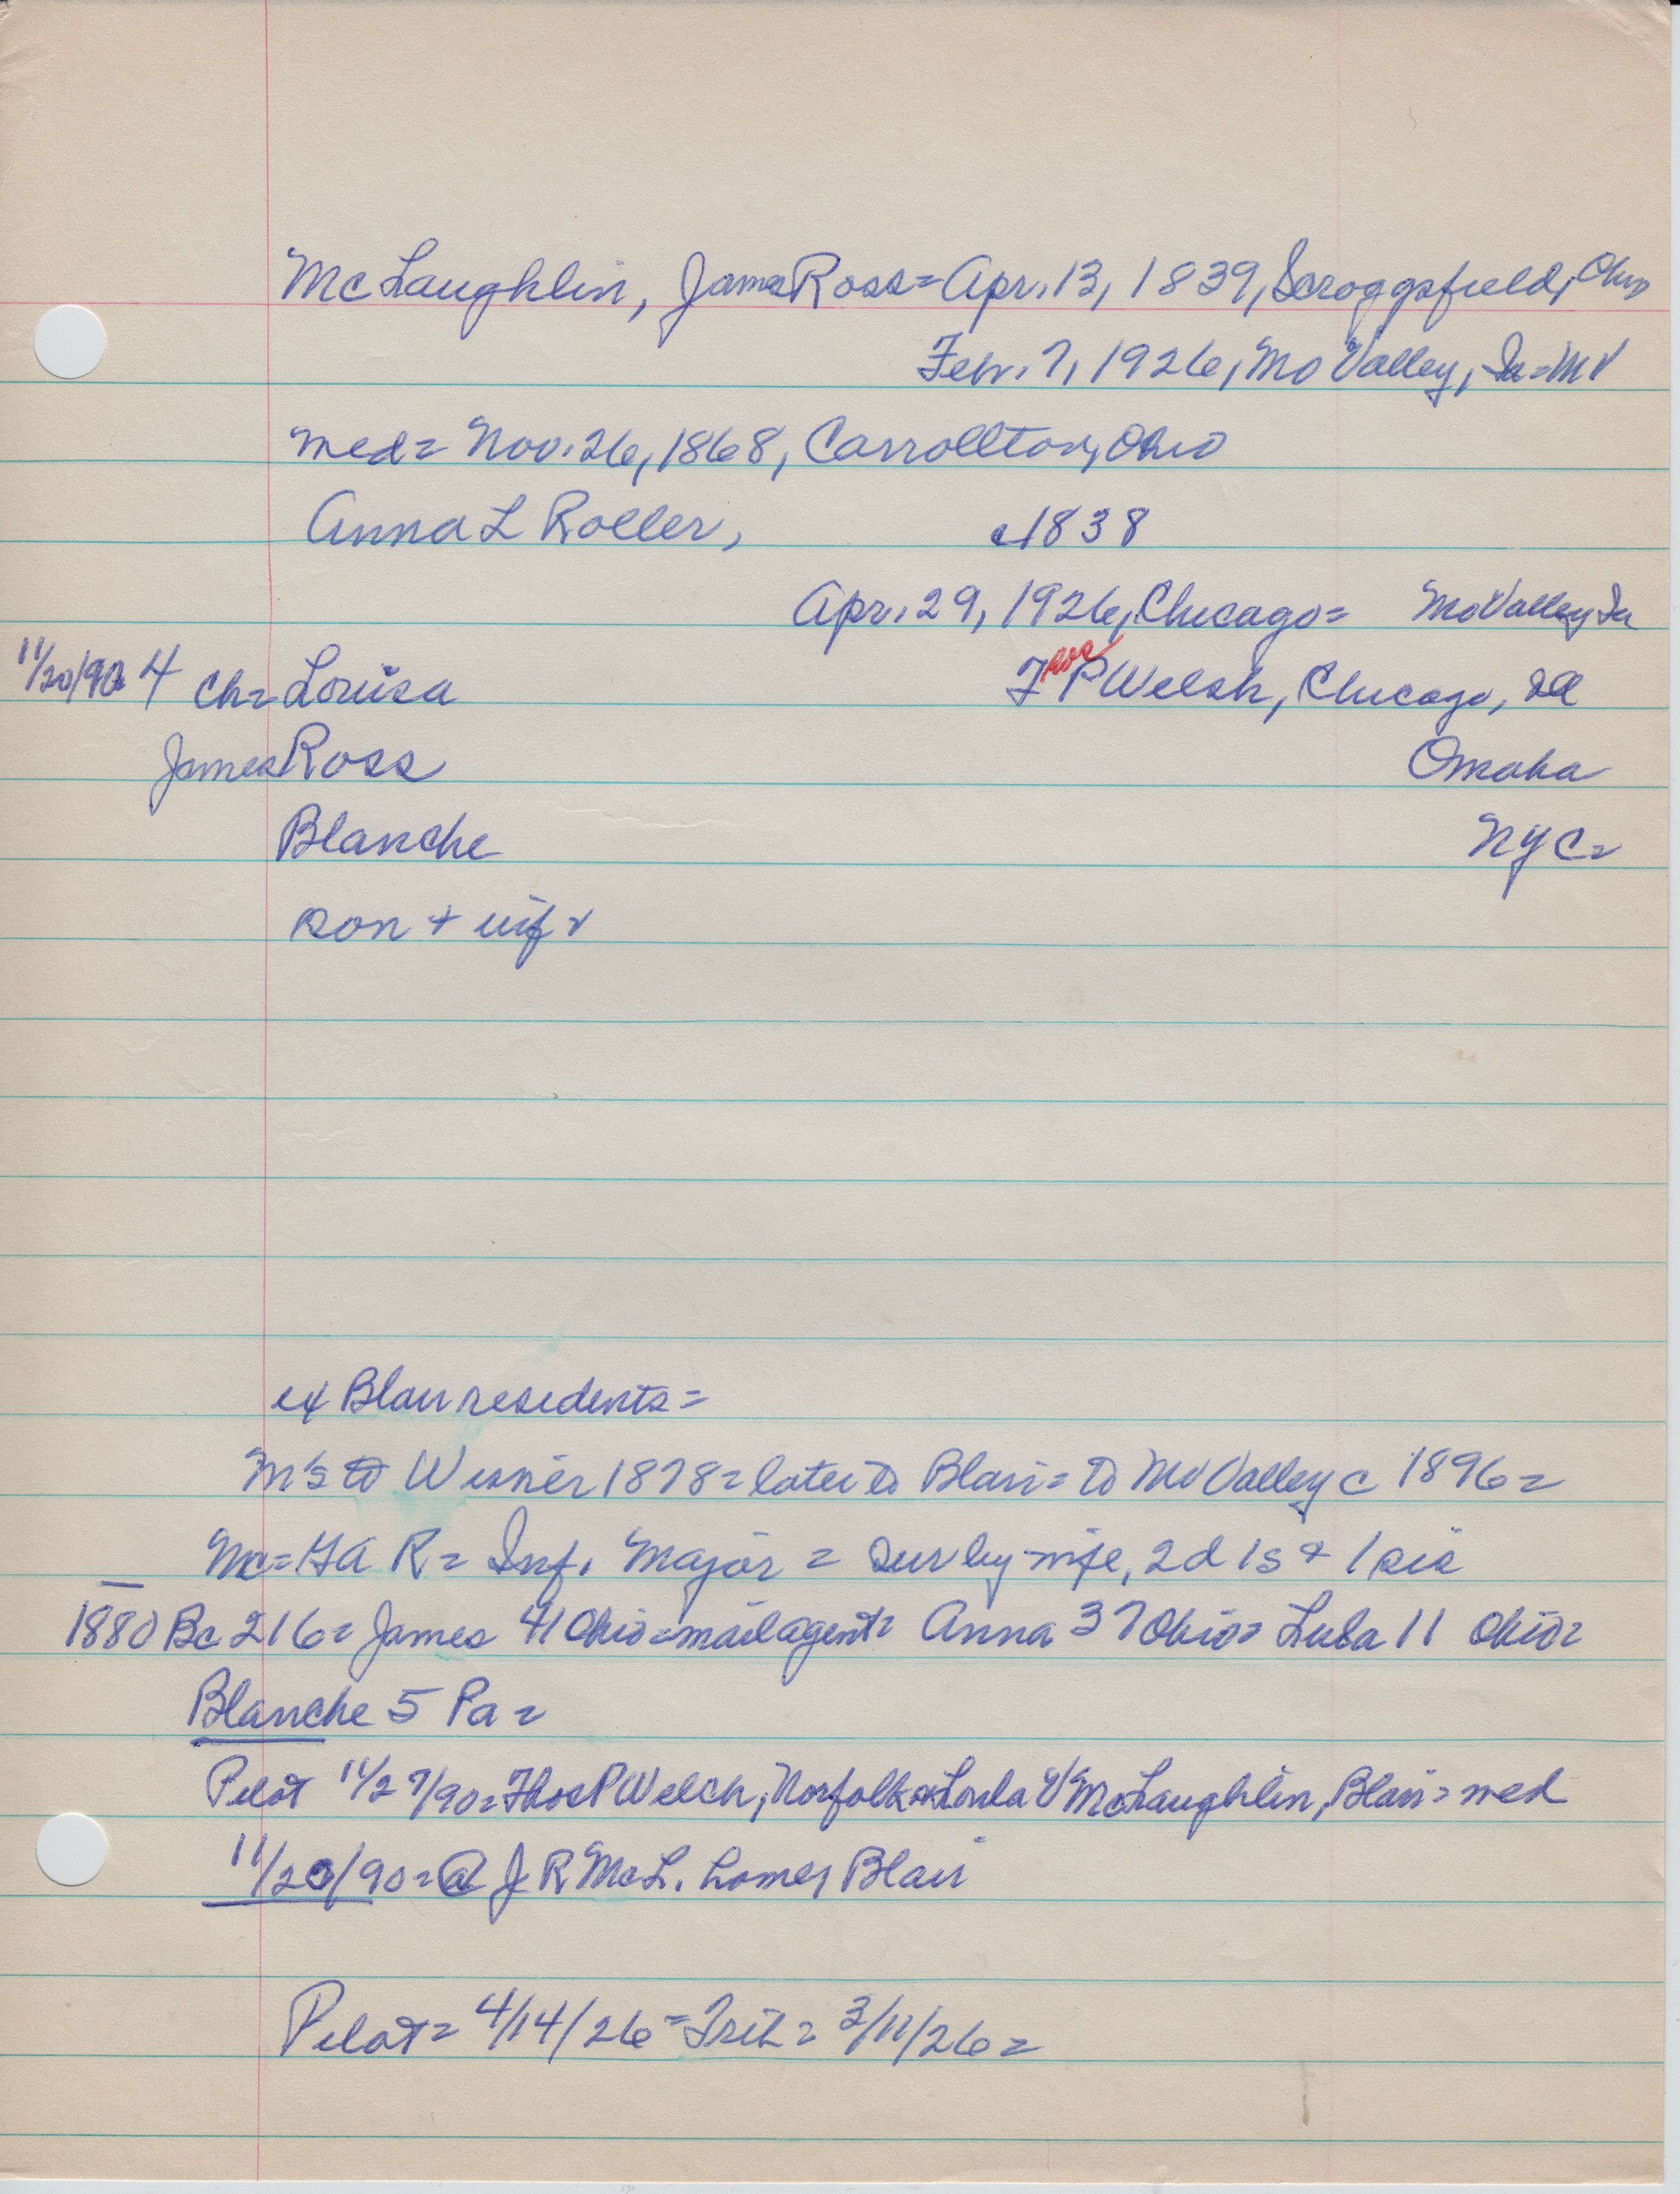 McLaughlin, James Ross = Apr. 13, 1839, Scroggsfield, Ohio
Feb. 7, 1926, Mo Valley, Ia = MV
Med = Nov. 26, 1868, Carrollton, Ohio
Anna L Roller, c1838
Apr. 29, 1926, Chicago = Mo Valley Ia
11/20/90 4 Ch = Louisa Thos P Welsh, Chicago, Ill
James Ross Omaha
Blanche NYC =
son + wife
ex Blair residents =
M's to Wisner 1878 = later to Blair = to Mo Valley c 1896 =
Mc = GAR = Inf. Major = Sur by wife, 2d 1s + 1 sis
1880 Bc 216 = James 41 Ohio = mail agent = Anna 37 Ohio = Lula 11 Ohio =
Blanche 5 Pa =
Pilot 11/27/90 = Thos P Welch, Norfolk x Loula V McLaughlin, Blair = med
11/20/90 = @ J R McL. home, Blair
Pilot = 4/14/26 = Trib = 3/11/26 =